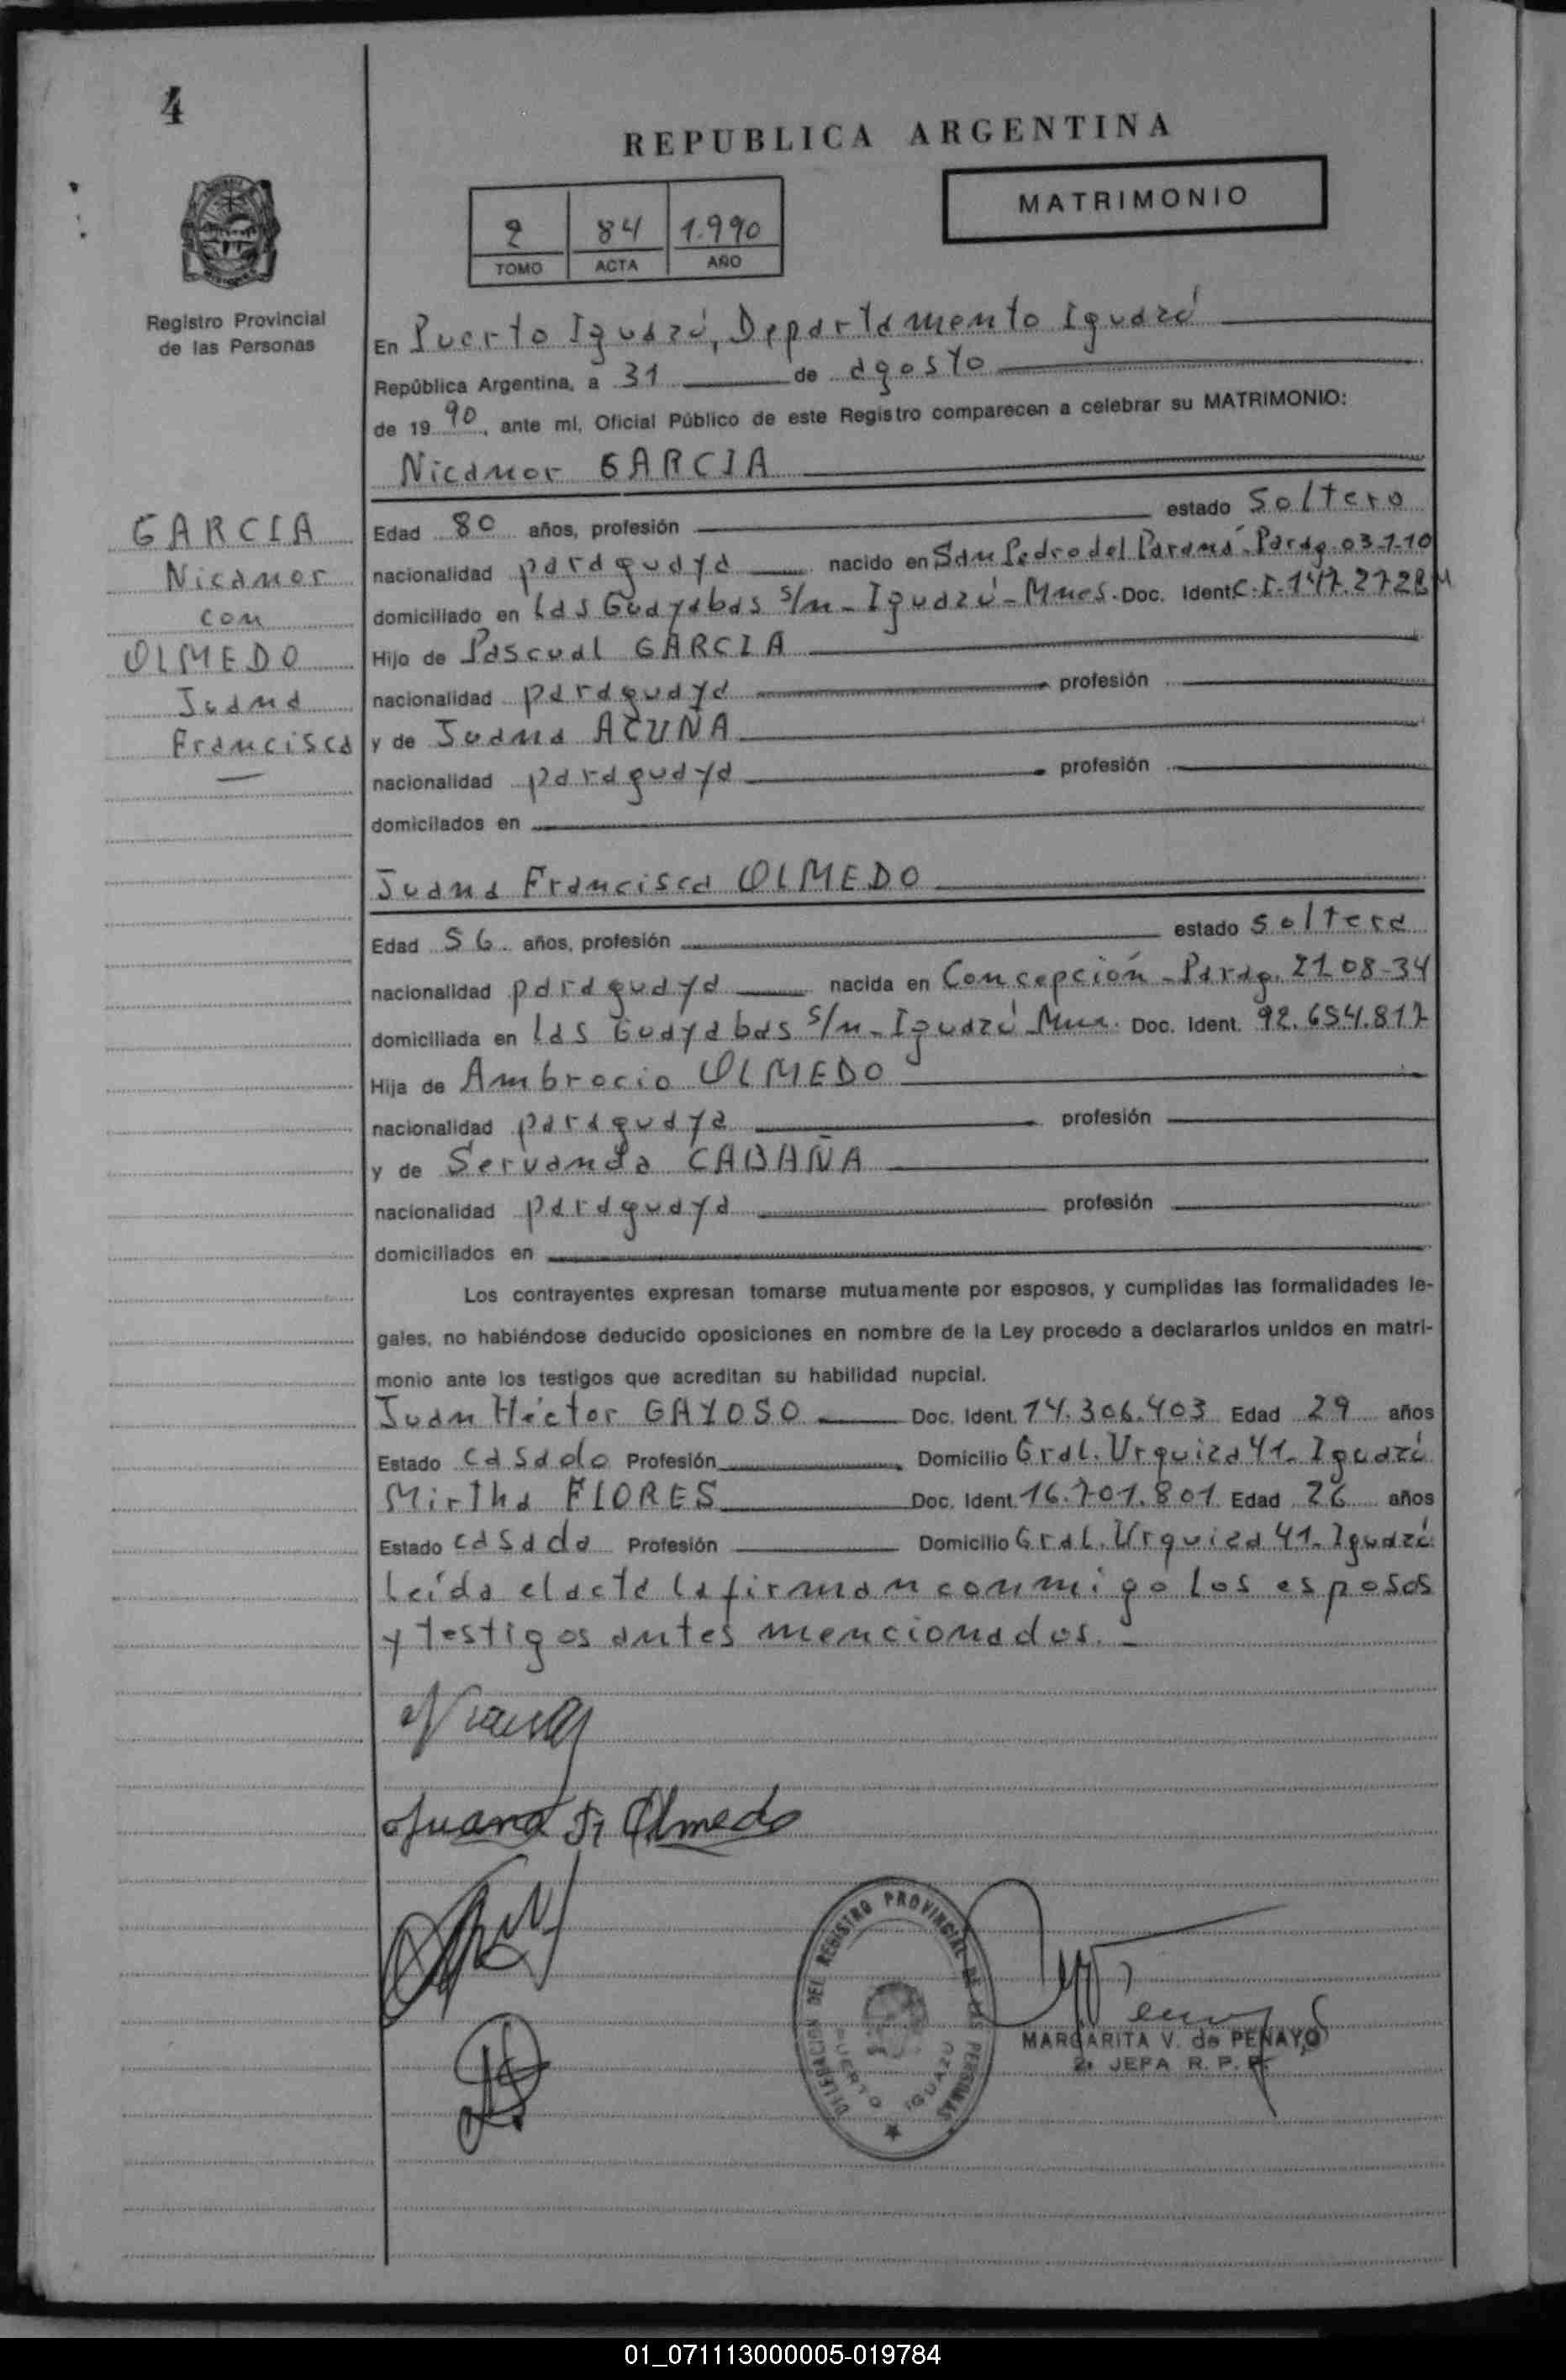 4
REPUBLICA ARGENTINA
MATRIMONIO
2 84 1.990
TOMO ACTA AÑO
Registro Provincial
de las Personas
En Puerto Iguazú, Departamento Iguazú
República Argentina, a 31 de agosto
de 1990, ante mi, Oficial Público de este Registro comparecen a celebrar su MATRIMONIO:
Nicanor GARCIA
GARCIA
Nicanor
con
OLMEDO
Juana
Francisca
Edad 80 años, profesión estado Soltero
nacionalidad paraguaya nacido en San Pedro del Paraná-Parag. 03-1-10
domiciliado en Las Guayabas s/n - Iguazú - Mnes. Doc. Ident. C.I. 147.2728
Hijo de Pascual GARCIA
nacionalidad paraguaya profesión
y de Juana ACUÑA
nacionalidad paraguaya profesión
domicilados en
Juana Francisca OLMEDO
Edad 56 años, profesión estado soltera
nacionalidad paraguaya nacida en Concepción - Parag. 21-08-34
domiciliada en Las Guayabas s/n - Iguazú Doc. Ident. 92.654.817
Hija de Ambrocio OLMEDO
nacionalidad paraguaya profesión
y de Servanda CABAÑA
nacionalidad paraguaya profesión
domiciliados en
Los contrayentes expresan tomarse mutuamente por esposos, y cumplidas las formalidades le-
gales, no habiéndose deducido oposiciones en nombre de la Ley procedo a declararlos unidos en matri-
monio ante los testigos que acreditan su habilidad nupcial.
Juan Héctor GAYOSO Doc. Ident. 14.306.403 Edad 29 años
Estado casado Profesión Domicilio Gral. Urquiza 41. Iguazú
Mirtha FLORES Doc. Ident. 16.701.801 Edad 26 años
Estado casada Profesión Domicilio Gral. Urquiza 41. Iguazú
Leída el acta la firman conmigo los esposos
y testigos antes mencionados. -
Juana F. Olmedo
DELEGACION DEL REGISTRO PROVINCIAL DE LAS PERSONAS
PUERTO IGUAZU
MARGARITA V. de PENAYO
2ª JEFA R. P. P.
01_071113000005-019784